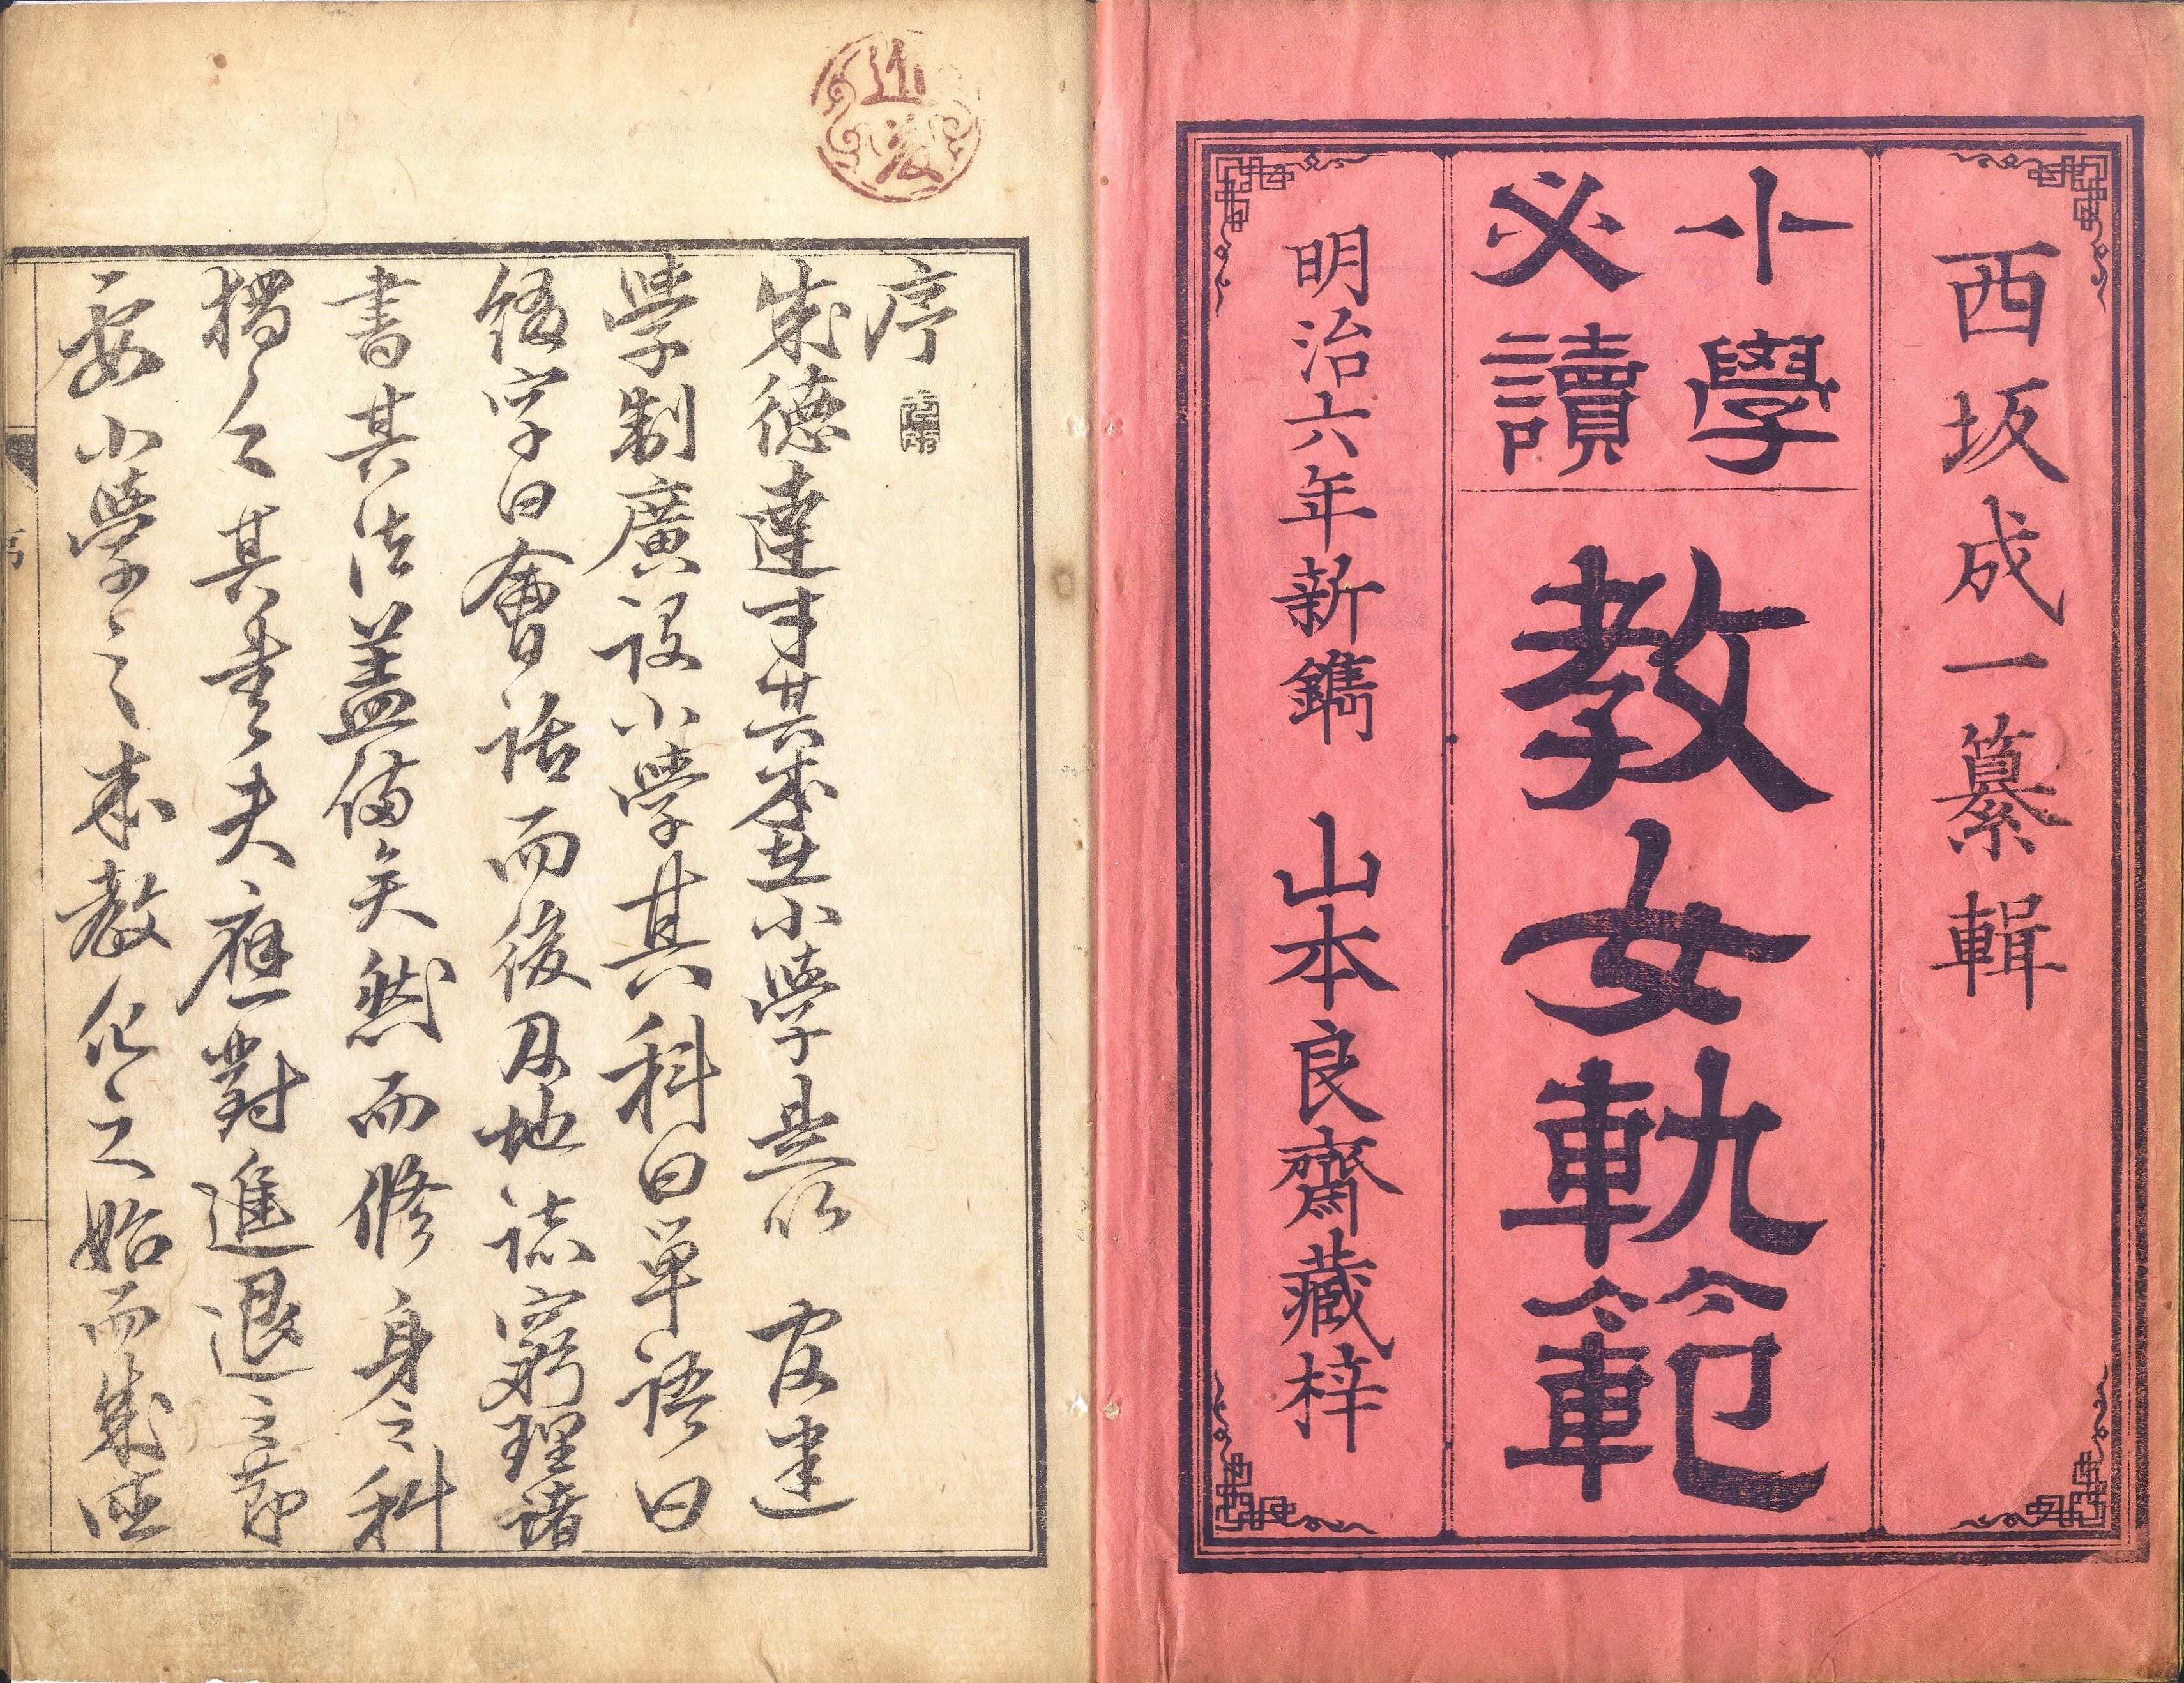 西坂成一纂輯
小學
必讀
教女軌範
明治六年新鐫 山本良齋藏梓
序
成德達才其本在小學是以 官建
學制廣設小學其科曰單語曰
綴字曰會話而後及地誌窮理諸
書其法蓋備矣然而修身之科
獨欠其書夫應對進退之節
要小學之本教化之始而成